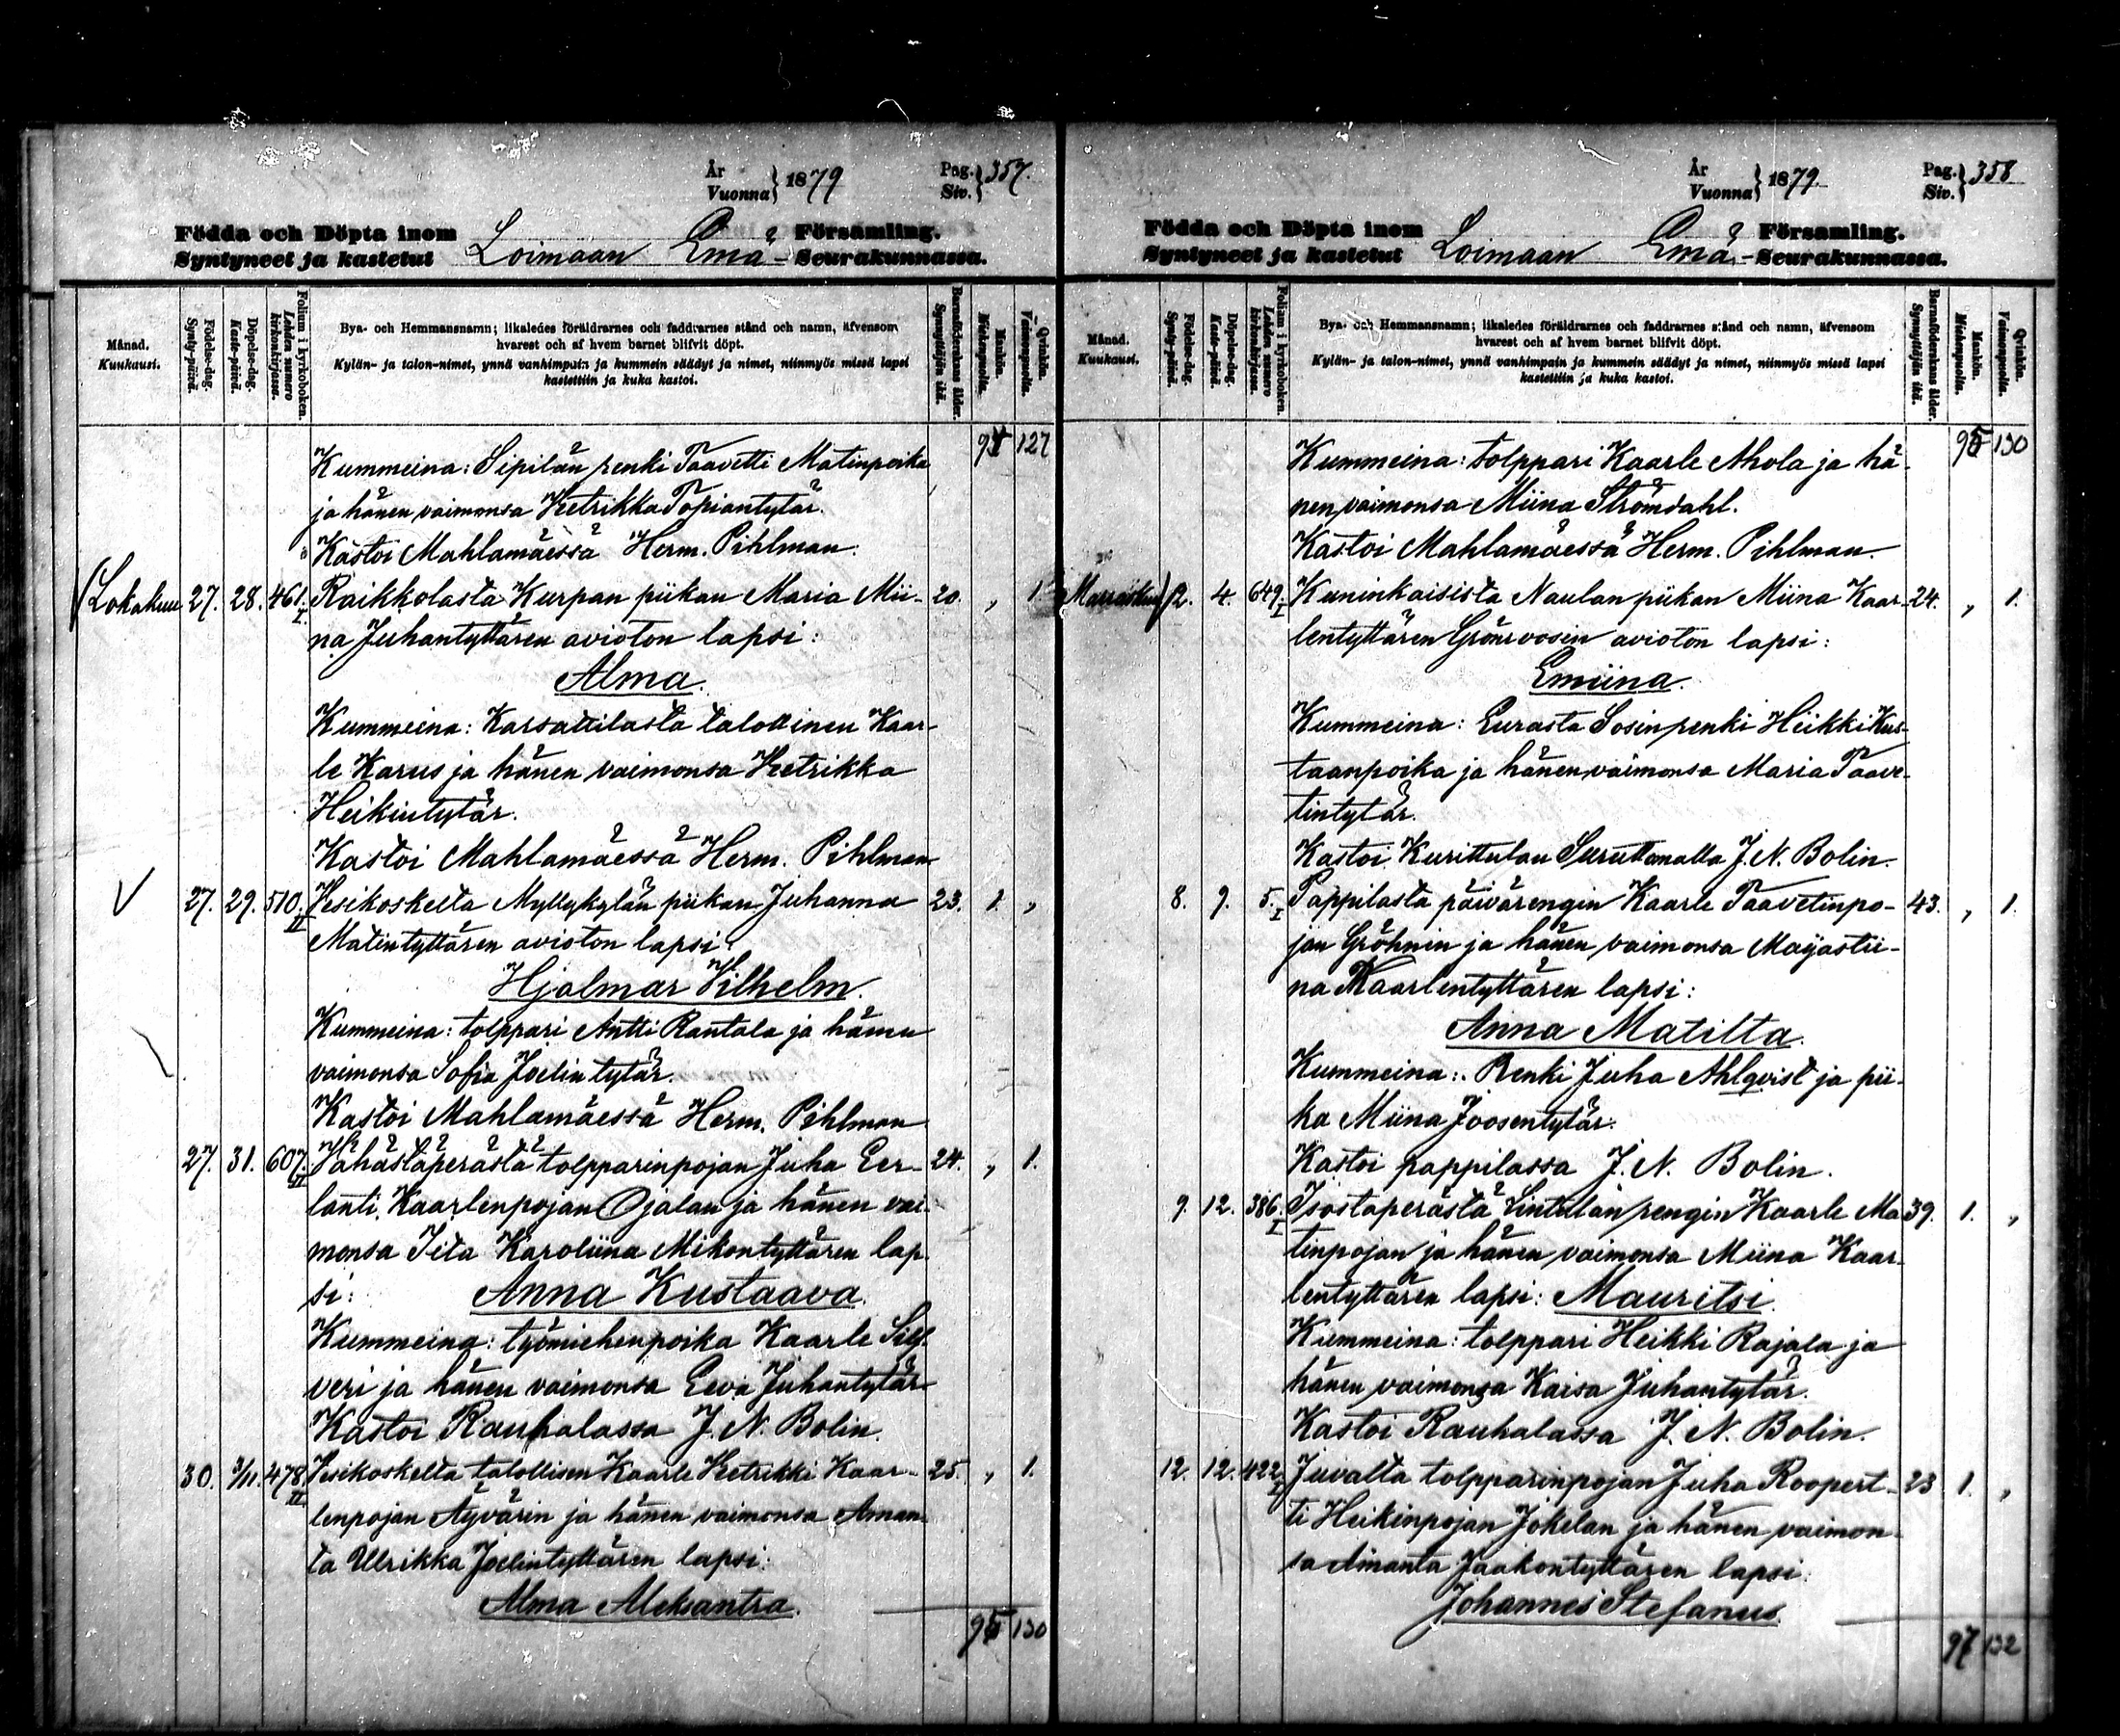 År
Vuonna } 1879
Pag.
Siv. } 357.
Födda och Döpta inom
Syntyneet ja kastetut
Loimaan Emä-
Församling.
Seurakunnassa.
Månad.
Kuukausi.
Födelse-dag.
Synty-päivä.
Döpelse-dag.
Kaste-päivä.
Folium i kyrkoboken.
Lehden numero kirkonkirjassa.
Bya- och Hemmansnamn; likaledes föräldrarnes och faddrarnes stånd och namn, äfvensom
hvarest och af hvem barnet blifvit döpt.
Kylän- ja talon-nimet, ynnä vanhimpain ja kummein säädyt ja nimet, niinmyös missä lapsi
kastettiin ja kuka kastoi.
Barnaföderskans ålder.
Synnyttäjän ikä.
Mankön.
Miehenpuolta.
Qvinkön.
Vaimonpuolta.
Kummeina: Sipilän renki Taavetti Matinpoika 127
ja hänen vaimonsa Ketrikka Topiantytär.
Kastoi Mahlamäessä Herm. Pihlman.
Lokakuu 27. 28. 461. I Raikkolasta Kurpan piikan Maria Mii- 20. „ 1.
na Juhantyttären avioton lapsi:
Alma.
Kummeina: Karsattilasta talollinen Kaar-
le Karus ja hänen vaimonsa Ketrikka
Heikintytär.
Kastoi Mahlamäessä Herm. Pihlman
27. 29. 510. II Vesikoskelta Myllykylän piikan Juhanna 23. 1. „
Matintyttären avioton lapsi:
Hjalmar Vilhelm.
Kummeina: tolppari Antti Rantala ja hänen
vaimonsa Sofia Joelin tytär.
Kastoi Mahlamäessä Herm. Pihlman
27. 31. 607. II tolpparinpojan Juha Eer- 24. „ 1.
lanti Kaarlenpojan Ojalan ja hänen vai-
monsa Iita Karoliina Mikontyttären lap-
si: Anna Kustaava.
Kummeina: työmiehenpoika Kaarle Silf-
veri ja hänen vaimonsa Eeva Juhantytär
Kastoi Rauhalassa J. N. Bolin.
30. 3/11. 478 II Vesikoskelta talollisen Kaarle Ketrikki Kaar- 25. „ 1.
lenpojan Äyvärin ja hänen vaimonsa Aman-
ta Ulrikka Joelintyttären lapsi:
Alma Aleksantra.
95 130
År
Vuonna } 1879.
Pag.
Siv. } 358
Födda och Döpta inom
Syntyneet ja kastetut
Loimaan Emä-
Församling.
Seurakunnassa.
Månad.
Kuukausi.
Födelse-dag.
Synty-päivä.
Döpelse-dag.
Kaste-päivä.
Folium i kyrkoboken.
Lehden numero kirkonkirjassa.
Bya- och Hemmansnamn; likaledes föräldrarnes och faddrarnes stånd och namn, äfvensom
hvarest och af hvem barnet blifvit döpt.
Kylän- ja talon-nimet, ynnä vanhimpain ja kummein säädyt ja nimet, niinmyös missä lapsi
kastettiin ja kuka kastoi.
Barnaföderskans ålder.
Synnyttäjän ikä.
Mankön.
Miehenpuolta.
Qvinkön.
Vaimonpuolta.
Kummeina: tolppari Kaarle Ahola ja hä- 95 130
nen vaimonsa Miina Strömdahl.
Kastoi Mahlamäessä Herm. Pihlman.
Marraskuu 2. 4. 649. I Kuninkaisista Naulan piikan Miina Kaar- 24. „ 1.
lentyttären Grönroosin avioton lapsi:
Emiina.
Kummeina: Eurasta Sosin renki Heikki Kus-
taanpoika ja hänen vaimonsa Maria Taave-
tintytär.
Kastoi Kurittulan J. N. Bolin.
8. 9. 5. I Pappilasta päivärengin Kaarle Taavetinpo- 43. „ 1.
jan Gröhnin ja hänen vaimonsa Maijastii-
na Kaarlentyttären lapsi:
Anna Matilta.
Kummeina: Renki Juha Ahlqvist ja pii-
ka Miina Joosentytär.
Kastoi pappilassa J. N. Bolin.
9. 12. 386. I Isostaperästä Sintalan rengin Kaarle Ma- 39. 1. „
tinpojan ja hänen vaimonsa Miina Kaar-
lentyttären lapsi: Mauritsi.
Kummeina: tolppari Heikki Rajala ja
hänen vaimonsa Kaisa Juhantytär.
Kastoi Rauhalassa J. N. Bolin.
12. 12. 422 I Juvalta tolpparinpojan Juha Roopert- 23 1. „
ti Heikinpojan Jokelan ja hänen vaimon-
sa Amanta Jaakontyttären lapsi:
Johannes Stefanus.
97 132